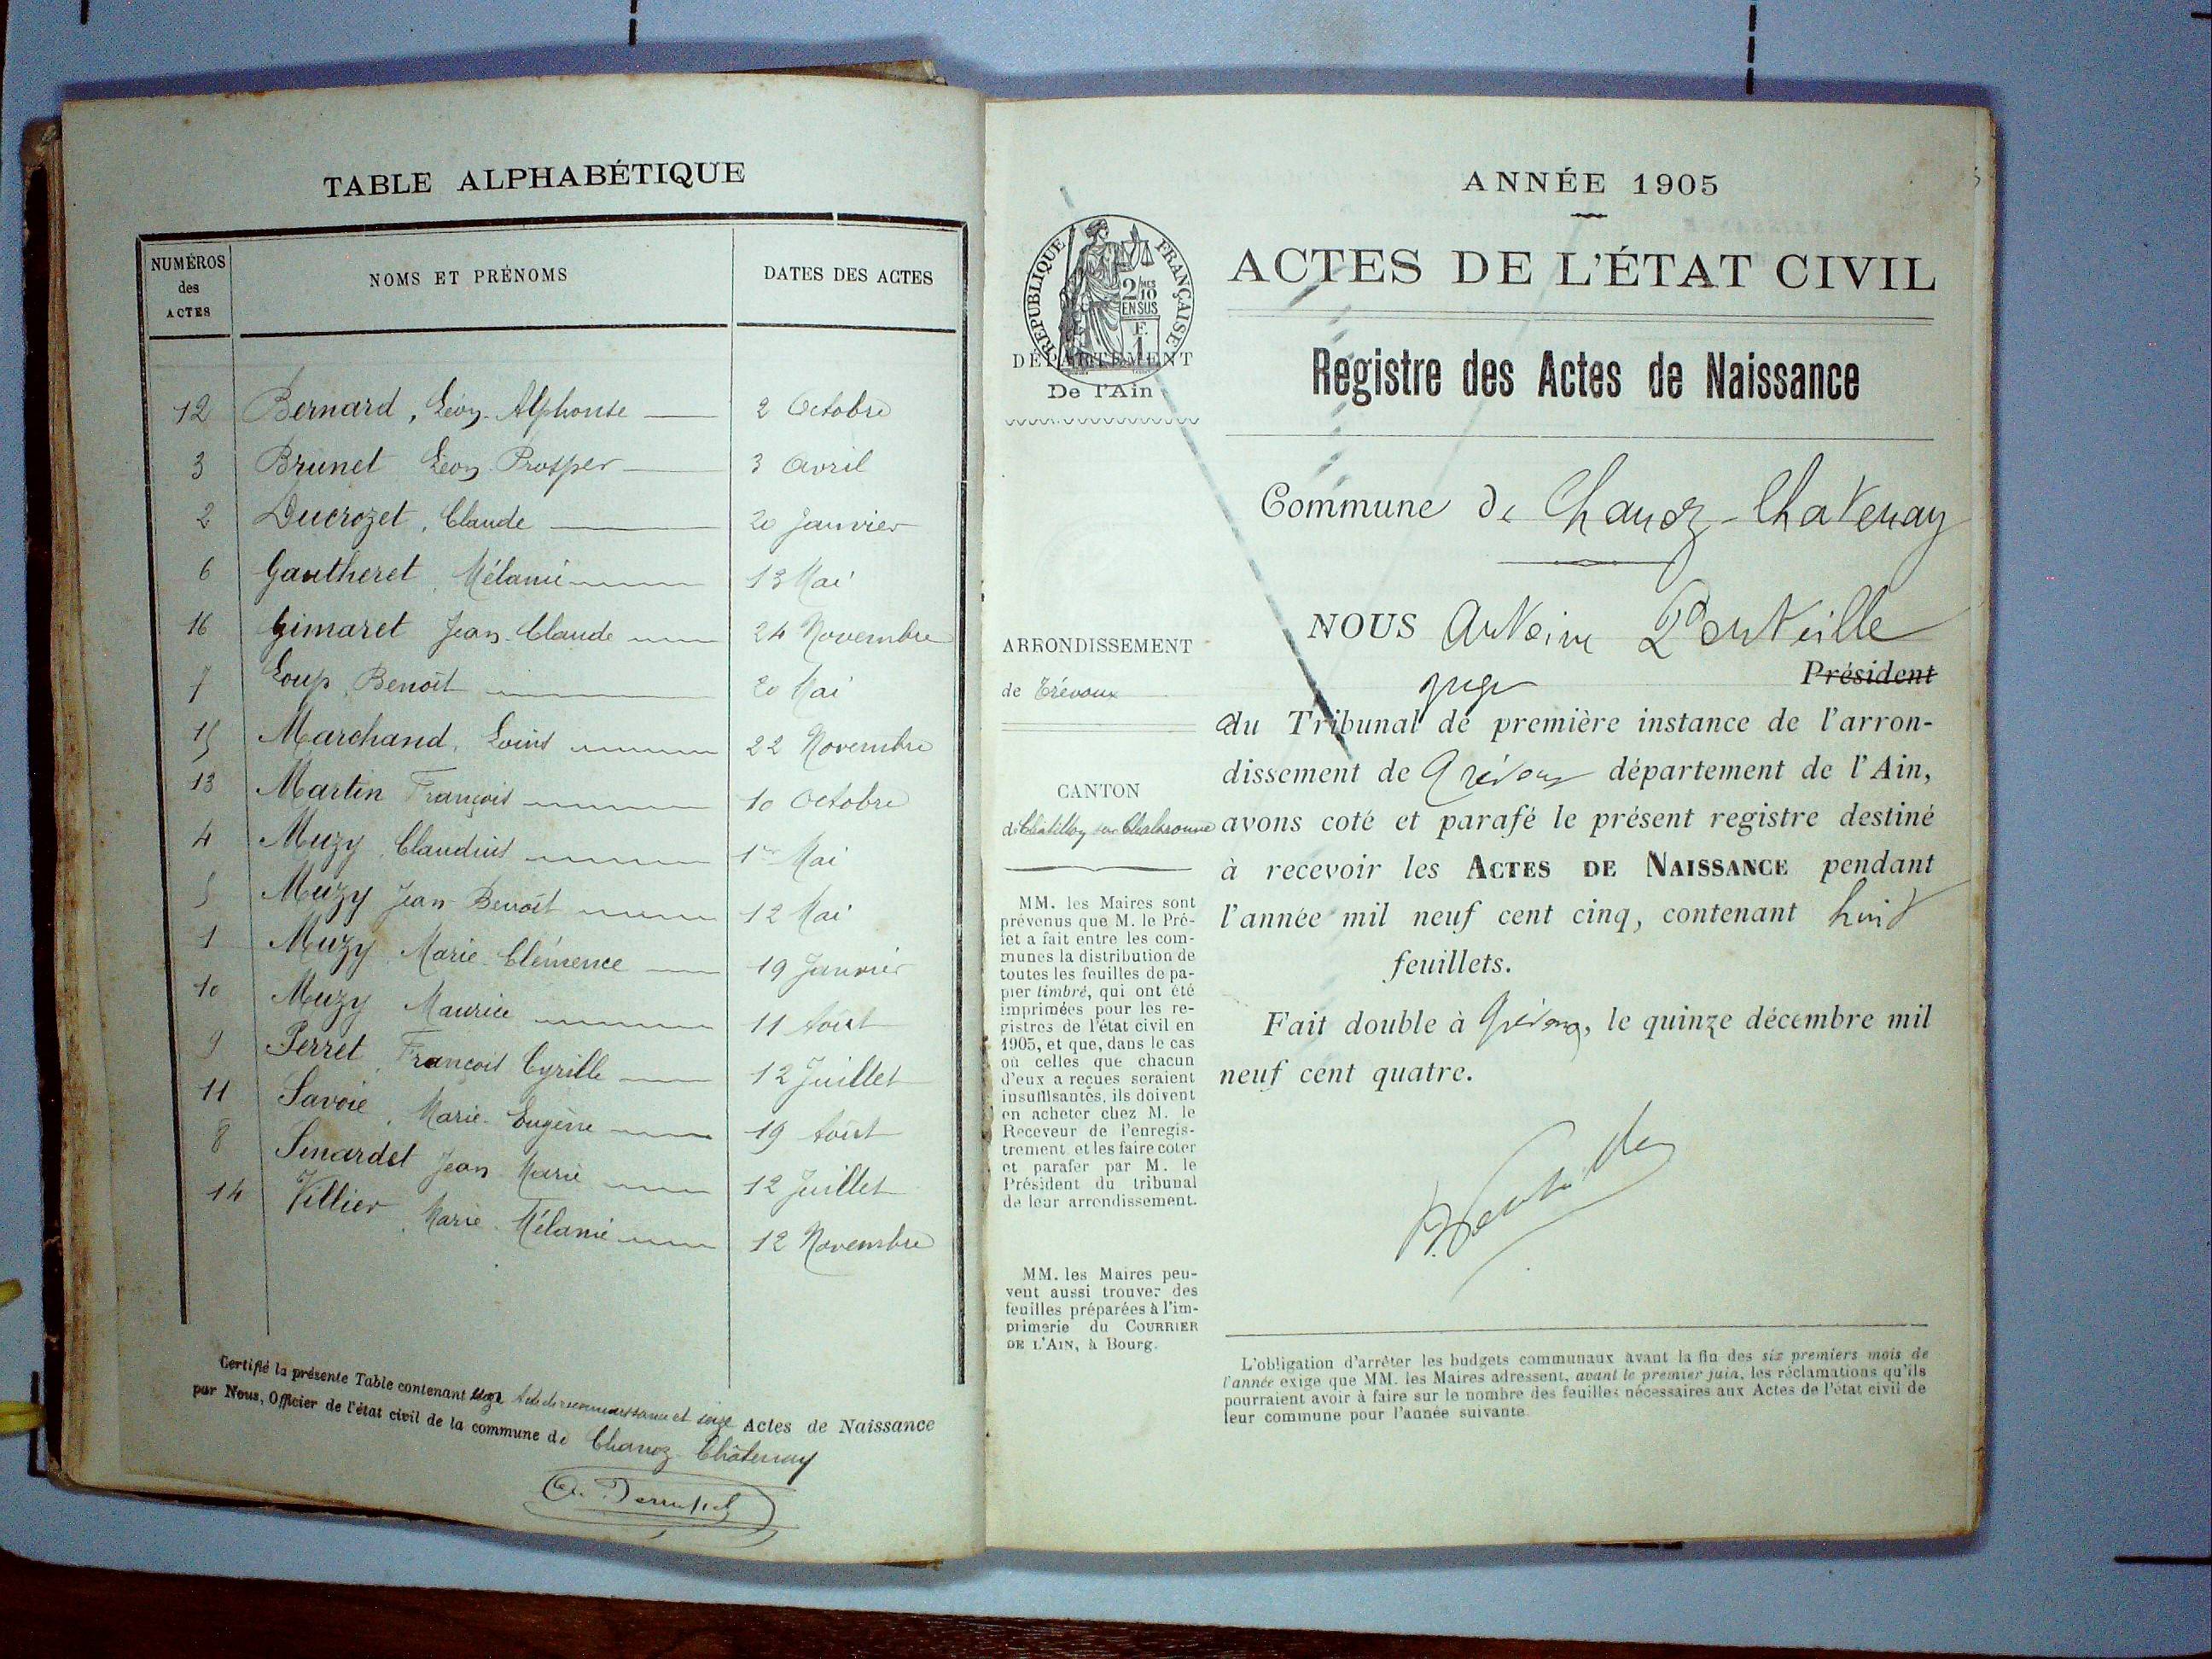 TABLE ALPHABÉTIQUE
NUMÉROS des ACTES
NOMS ET PRÉNOMS
DATES DES ACTES
12 Bernard, Léon Alphonse 2 Octobre
3 Brunet Léon Prosper 3 Avril
2 Ducrozet, Claude 20 Janvier
6 Gautheret, Mélanie 13 Mai
16 Gimaret Jean-Claude 24 Novembre
7 Loup Benoît 20 Mai
15 Marchand, Louis 22 Novembre
13 Martin François 10 Octobre
4 Muzy, Claudius 1er Mai
5 Muzy Jean-Benoît 12 Mai
1 Muzy Marie-Clémence 19 Janvier
10 Muzy Maurice 11 Août
9 Perret, François Cyrille 12 Juillet
11 Savoie, Marie-Eugène 19 Août
8 Senardet Jean Marie 12 Juillet
14 Villier, Marie-Mélanie 12 Novembre
Certifié la présente Table contenant Acte de reconnaissance et seize Actes de Naissance
par Nous, Officier de l'état civil de la commune de Chanoz-Châtenay
ANNÉE 1905
RÉPUBLIQUE FRANÇAISE
2/10 EN SUS
F. 1
DÉPARTEMENT
De l'Ain
ACTES DE L'ÉTAT CIVIL
Registre des Actes de Naissance
Commune de Chanoz-Chatenay
ARRONDISSEMENT
de Trévoux
CANTON
de Châtillon sur Chalaronne
MM. les Maires sont
prévenus que M. le Pré-
fet a fait entre les com-
munes la distribution de
toutes les feuilles de pa-
pier timbré, qui ont été
imprimées pour les re-
gistres de l'état civil en
1905, et que, dans le cas
où celles que chacun
d'eux a reçues seraient
insuffisantes, ils doivent
en acheter chez M. le
Receveur de l'enregis-
trement et les faire coter
et parafer par M. le
Président du tribunal
de leur arrondissement.
MM. les Maires peu-
vent aussi trouver des
feuilles préparées à l'im-
primerie du COURRIER
DE L'AIN, à Bourg.
NOUS Antoine Ponteille
juge Président
du Tribunal de première instance de l'arron-
dissement de Trévoux département de l'Ain,
avons coté et parafé le présent registre destiné
à recevoir les ACTES DE NAISSANCE pendant
l'année mil neuf cent cinq, contenant huit
feuillets.
Fait double à Trévoux, le quinze décembre mil
neuf cent quatre.
L'obligation d'arrêter les budgets communaux avant la fin des six premiers mois de
l'année exige que MM. les Maires adressent, avant le premier juin, les réclamations qu'ils
pourraient avoir à faire sur le nombre des feuilles nécessaires aux Actes de l'état civil de
leur commune pour l'année suivante.